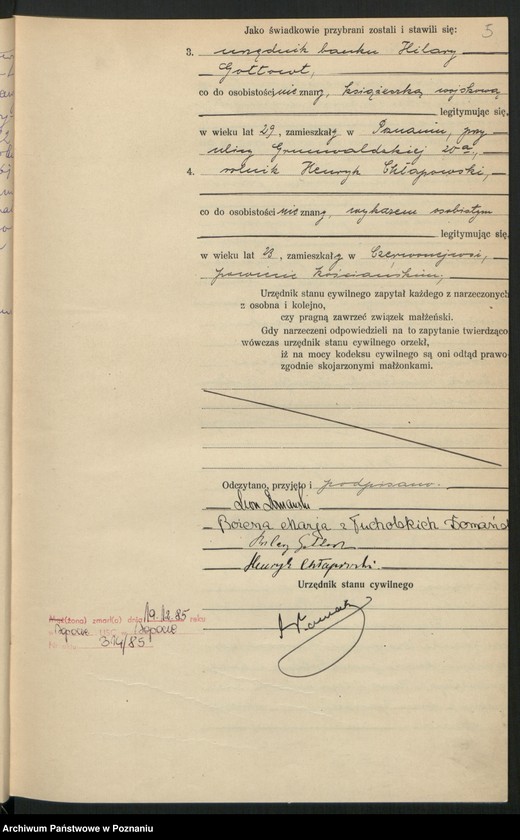 Jako świadkowie przybrani zostali i stawili się:
5
3. urzędnik banku Hilary
Gottowt,
co do osobistości nie znany, książeczką wojskową
legitymując się,
w wieku lat 29, zamieszkały w Poznaniu, przy
ulicy Grunwaldzkiej 20a,
4. rolnik Henryk Chłapowski,
co do osobistości nie znany, wykazem osobistym
legitymując się,
w wieku lat 23, zamieszkały w
powiecie kościańskim,
Urzędnik stanu cywilnego zapytał każdego z narzeczonych
z osobna i kolejno,
czy pragną zawrzeć związek małżeński.
Gdy narzeczeni odpowiedzieli na to zapytanie twierdząco
wówczas urzędnik stanu cywilnego orzekł,
iż na mocy kodeksu cywilnego są oni odtąd prawo-
zgodnie skojarzonymi małżonkami.
Odczytano, przyjęto i podpisano.
Leon
Bożena Marja z Tucholskich Domańs
Henryk Chłapowski.
Urzędnik stanu cywilnego
Mąż(żona) zmarł(a) dnia 19.12.85 roku
314/85
Archiwum Państwowe w Poznaniu